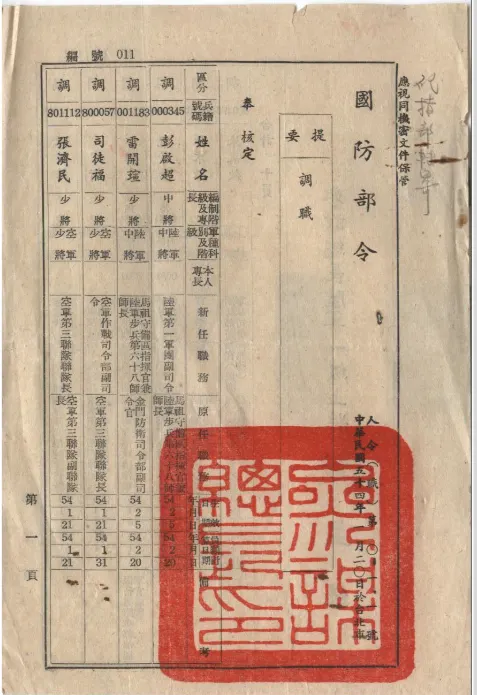 應視同機密文件保管
國防部令
人令(職)第〇一一號
中華民國五十四年一月二〇日於台北
提委
調職
奉
核定
編號 011
區分
兵籍號碼
姓名
編制階級及專長
軍種科別及階級
本人專長
新任職務
原任職務
年月日
年月日
備考
調
000345
彭啟超
中將
陸軍中將
陸軍第一軍團副司令
馬祖守備區指揮官兼陸軍步兵第六十八師師長
54
2
54
2
20
調
001183
雷開瑄
少將
陸軍中將
馬祖守備區指揮官兼陸軍步兵第六十八師師長
金門防衛司令部副司令官
54
2
5
54
2
20
調
800057
司徒福
少將
空軍少將
空軍作戰司令部副司令
空軍第三聯隊聯隊長
54
1
21
54
1
31
調
801112
張濟民
少將
空軍少將
空軍第三聯隊聯隊長
空軍第三聯隊副聯隊長
54
1
21
54
1
21
第一頁